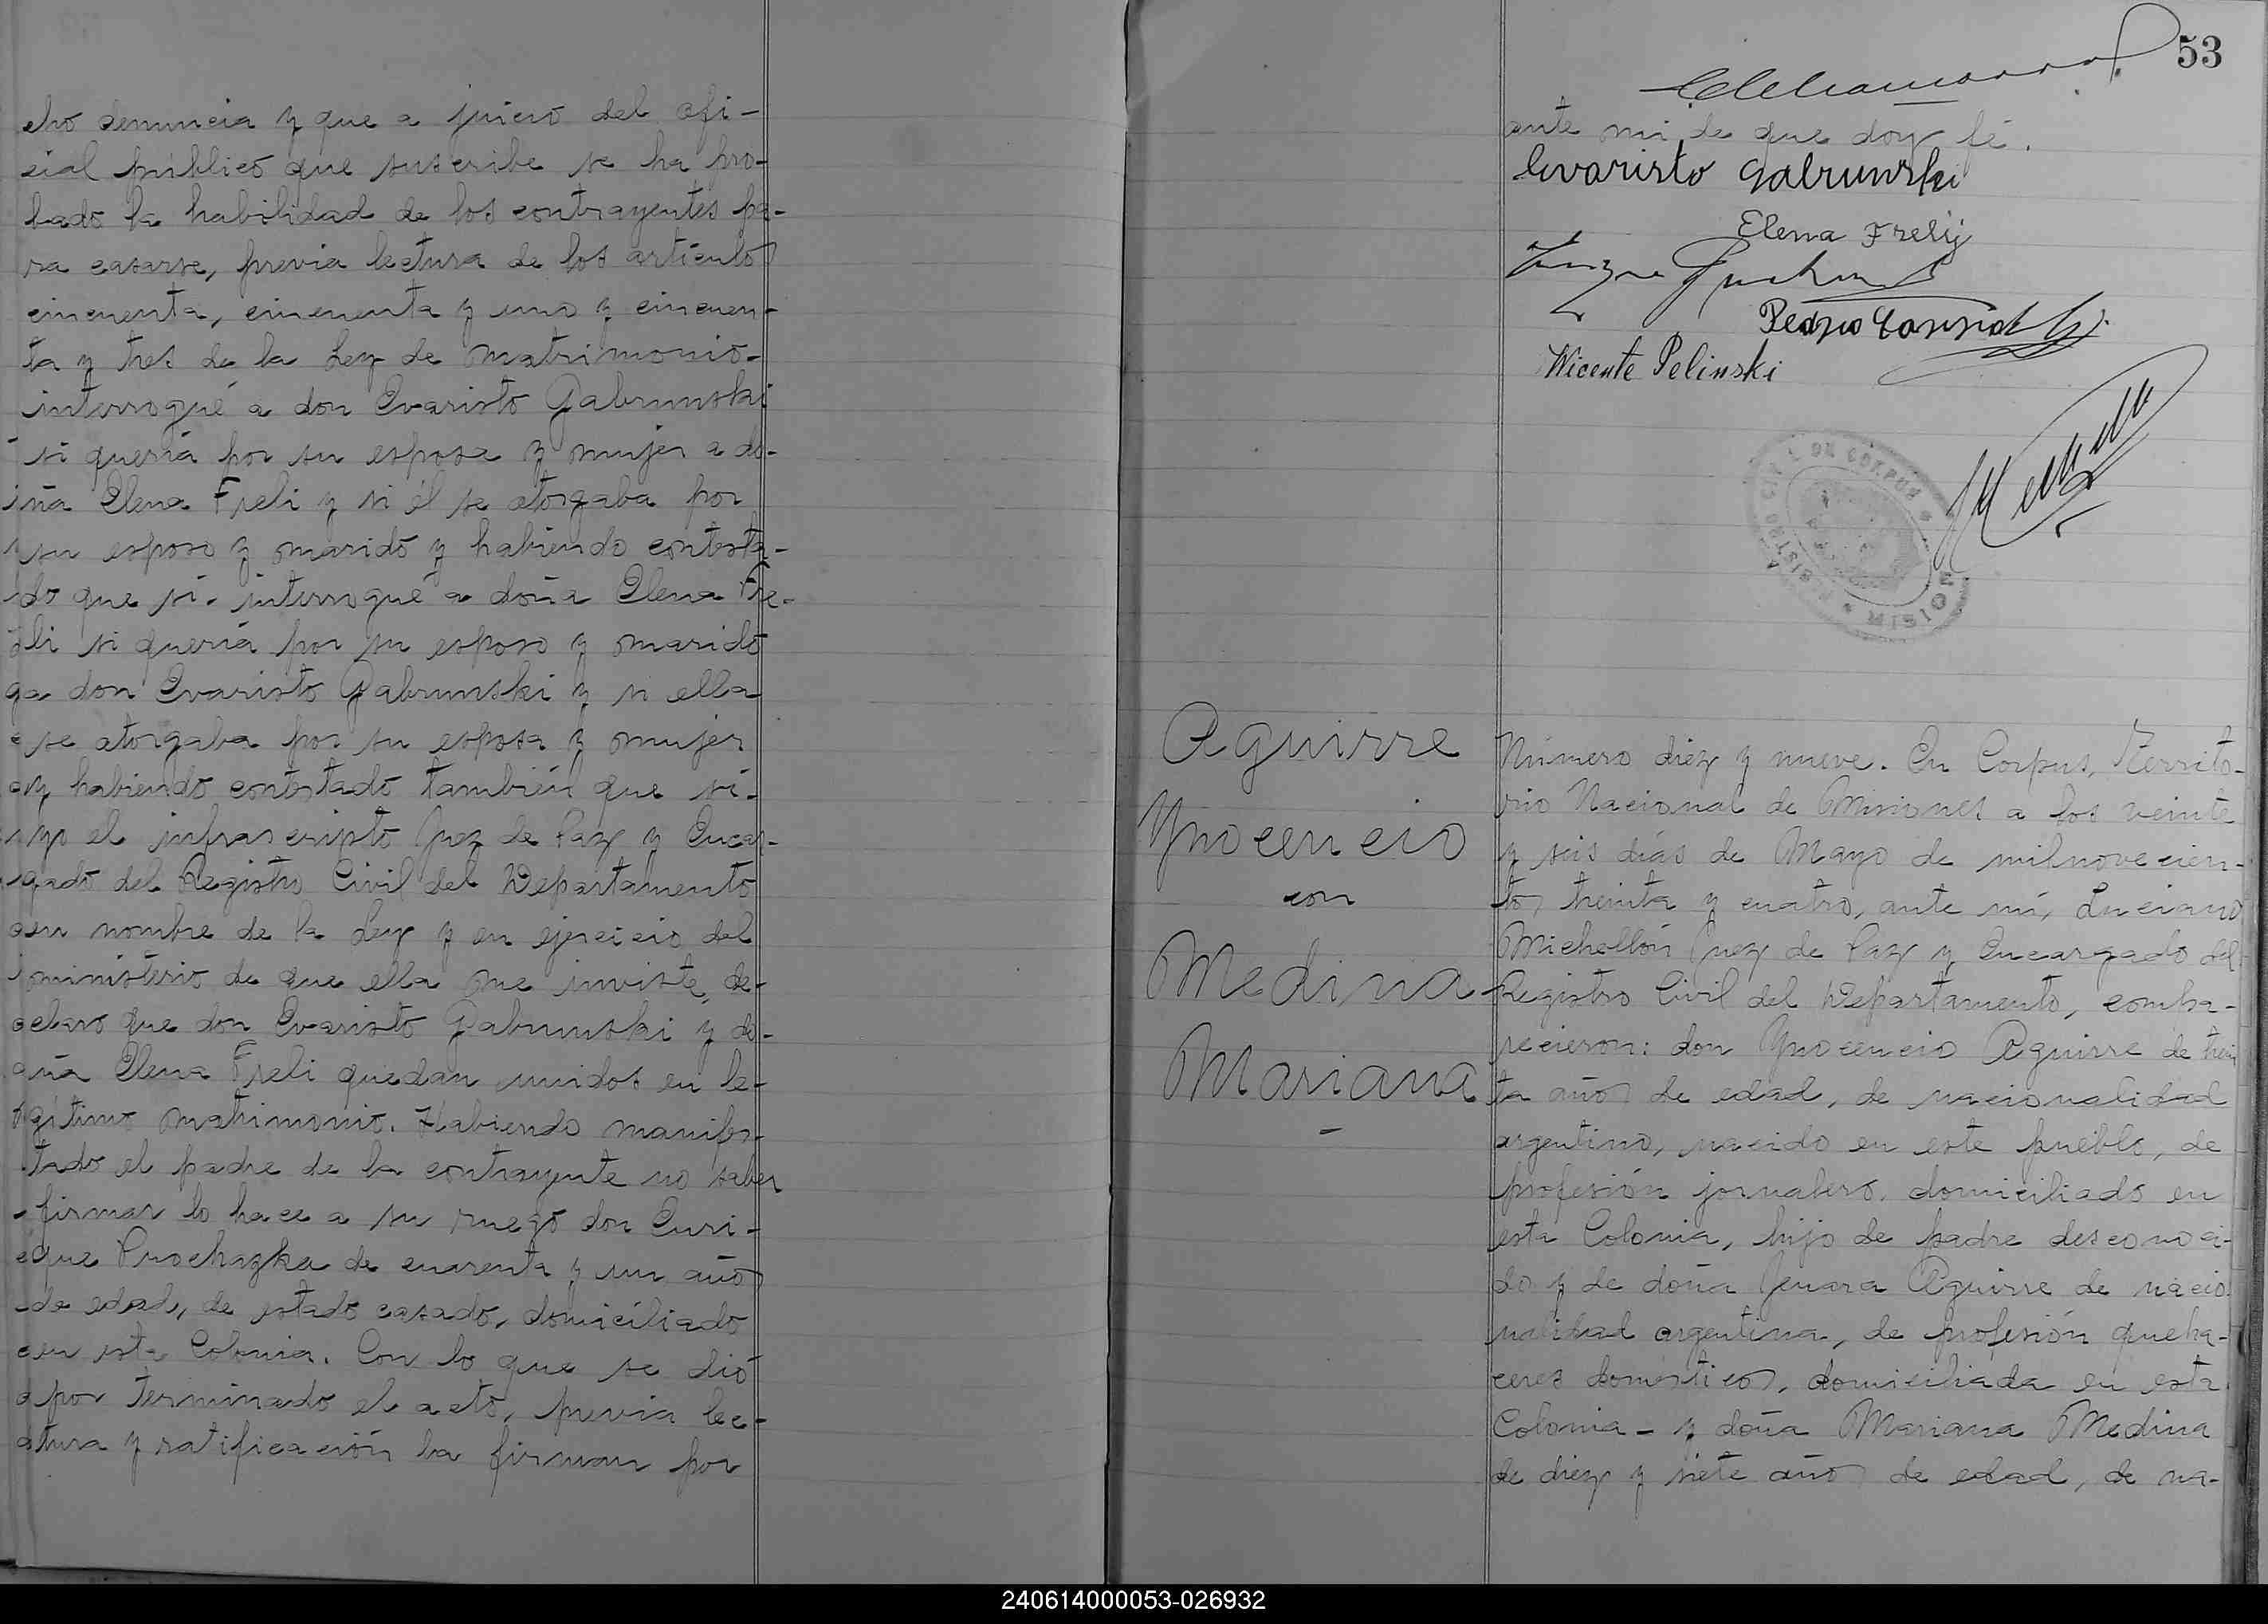 cho denuncia y que a juicio del ofi-
cial público que suscribe se ha pro-
bado la habilidad de los contrayentes pa-
ra casarse, previa lectura de los artículos
cincuenta, cincuenta y uno y cincuen-
ta y tres de la Ley de Matrimonio-
interrogué a don Evaristo Gabrunski
si quería por su esposa y mujer a do-
ña Elena Freli y si él se otorgaba por
su esposo y marido y habiendo contesta-
do que sí, interrogué a doña Elena Fre-
li si quería por su esposo y marido
a don Evaristo Gabrunski y si ella
se otorgaba por su esposa y mujer
y habiendo contestado también que sí-
yo el infrascripto Juez de Paz y Encar-
gado del Registro Civil del Departamento
en nombre de la Ley y en ejercicio del
ministerio de que ella me inviste, de-
claro que don Evaristo Gabrunski y do-
ña Elena Freli quedan unidos en le-
gítimo matrimonio. Habiendo manifes-
tado el padre de la contrayente no saber
firmar lo hace a su ruego don Enri-
que Prochazka de cuarenta y un años
de edad, de estado casado, domiciliado
en esta Colonia. Con lo que se dió
por terminado el acto, previa lec-
tura y ratificación la firman por
53
ante mi de que doy fé.
Evaristo Gabrunski
Elena Freli
Pedro
Vicente Pelinski
REGISTRO CIVIL DE CORPUS
MISIONE
Aguirre
Ynocencio
con
Medina
Mariana
-
Número diez y nueve. En Corpus, Territo-
rio Nacional de Misiones a los veinte
y seis días de Mayo de mil novecien-
tos treinta y cuatro, ante mí, Luciano
Michellón Juez de Paz y Encargado del
Registro Civil del Departamento, compa-
recieron: don Ynocencio Aguirre de trein
ta años de edad, de nacionalidad
argentino, nacido en este pueblo, de
profesión jornalero, domiciliado en
esta Colonia, hijo de padre desconoci-
do y de doña Jenara Aguirre de nacio
nalidad argentina, de profesión queha-
ceres domésticos, domiciliada en esta
Colonia - y doña Mariana Medina
de diez y siete años de edad, de na-
240614000053-026932